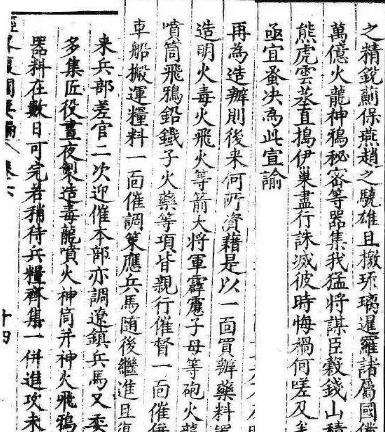 之精銳薊保燕趙之驍雄且檄琉璃暹羅諸屬國
萬億火龍神鴉秘密等器集我猛將謀臣穀錢山積
熊虎雲蒸直搗伊巢盡行誅滅彼時悔禍何嗟及
亟宜蚤決為此宣諭
再為造辦則後來何所資藉是以一面買辦藥料
造明火毒火飛火等箭大將軍霹靂子母等砲火龍
噴筒飛鴉鉛鐵子火藥等項皆親行催督一面催
車船搬運糧料一面催調策應兵馬随後繼進且
来兵部差官二次迎催本部亦調遼鎮兵馬又委
多集匠役晝夜製造毒龍噴火神筒并神火飛鴉
器料在數日可完若稍待兵糧齊集一併進攻未
經畧復國要編 卷六 十四